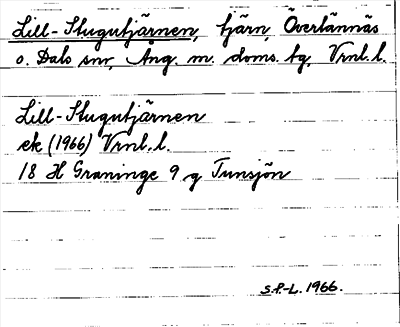 Lill-Stugutjärnen, tjärn, Överlännäs
o. Dals snr, Ång. m. doms. tg, Vrnl. l.
Lill-Stugutjärnen
ek (1966) Vrnl. l.
18 H Graninge 9 g Tunsjön
S.P.-L. 1966.